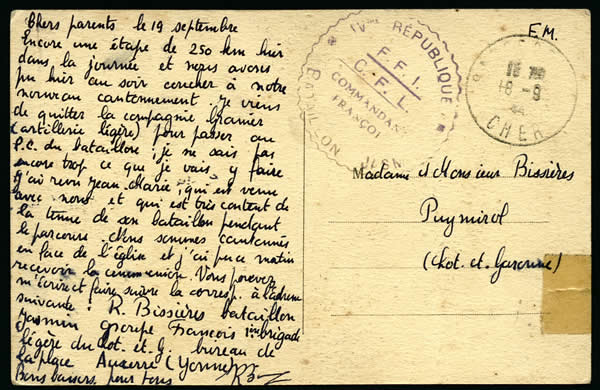 Chers parents le 19 septembre
Encore une étape de 250 km hier
dans la journée et nous avons
pu hier au soir coucher à notre
nouveau cantonnement. Je viens
de quitter la compagnie Granier
(artillerie légère) pour passer au
P.C. du bataillon ; je ne sais pas
encore trop ce que je vais y faire
J'ai revu Jean-Marie, qui est venu
avec nous et qui est très content de
la tenue de son bataillon pendant
le parcours. Nous sommes cantonnés
en face de l'église et j'ai pu ce matin
recevoir la communion. Vous pouvez
m'écrire et faire suivre la corresp. à l'adresse
suivante : R. Bissières bataillon
Jasmin groupe François 1ère brigade
légère du Lot. et. G. bureau de
la place Auxerre (Yonne)
Bons baisers pour tous
IVème RÉPUBLIQUE
F.F.I.
C.F.L.
COMMANDANT
FRANÇOIS
BATAILLON
E.M.
18-9
44
CHER
Madame et Monsieur Bissières
Puymirol
(Lot. et. Garonne)